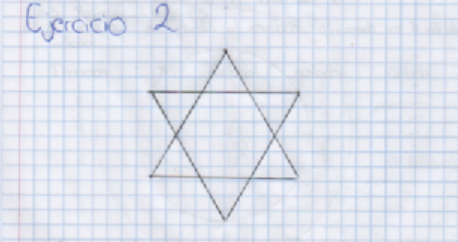 Ejercicio 2